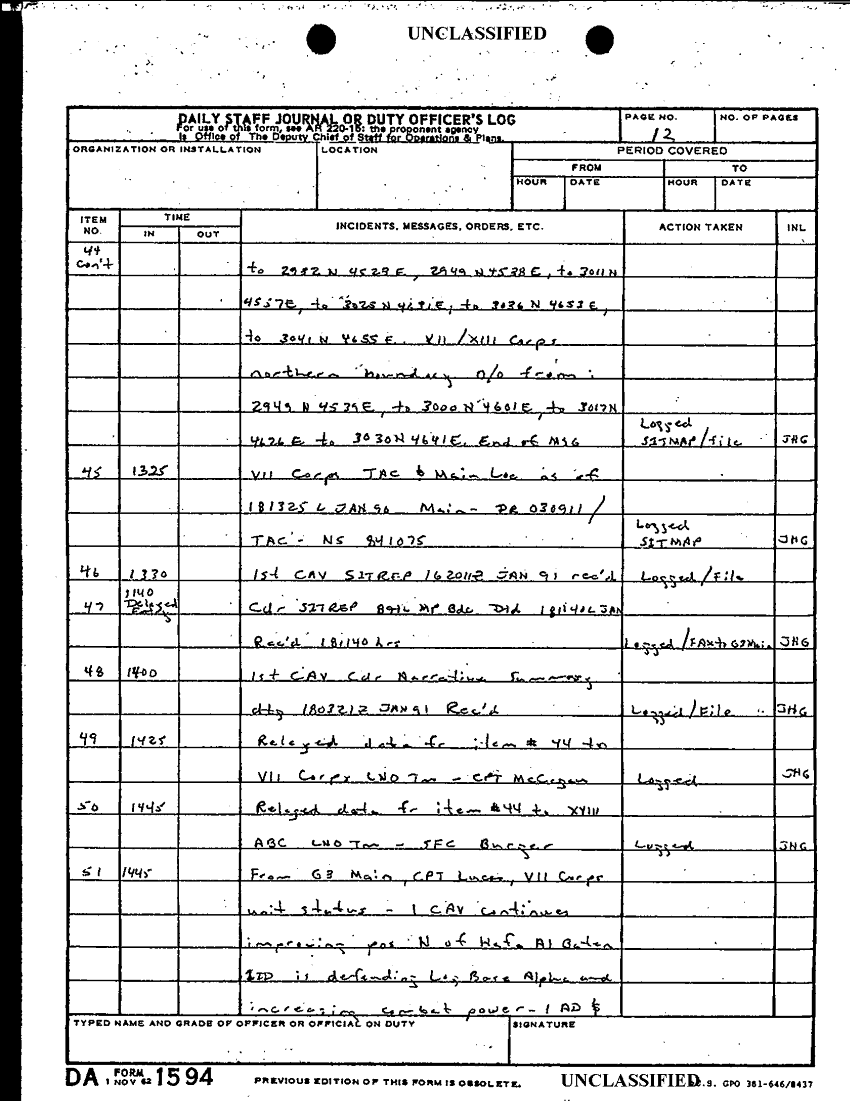 UNCLASSIFIED
DAILY STAFF JOURNAL OR DUTY OFFICER'S LOG
For use of this form, see AR 220-15; the proponent agency
is Office of The Deputy Chief of Staff for Operations & Plans.
PAGE NO.
12
NO. OF PAGES
ORGANIZATION OR INSTALLATION
LOCATION
PERIOD COVERED
FROM
TO
HOUR DATE HOUR DATE
ITEM NO.
TIME
IN OUT
INCIDENTS, MESSAGES, ORDERS, ETC.
ACTION TAKEN
INL
44
Con't
to 2952 N 4529 E, 2949 N 4538 E, to 3011 N
4557E, to 3025 N 4631E, to 3036 N 4653 E,
to 3041 N 4655 E. VII/XIII Corps
northern boundary o/o from:
2949 N 4539E, to 3000 N 4601E, to 3017N
4626 E to 3030N 4641E. End of MSG Logged SITMAP/file JHG
45 1325 VII Corps TAC & Main Loc as of
181325 L JAN 90 Main - PR 030911/
TAC - NS 841075 Logged SITMAP JHG
46 1330 1st CAV SITREP 162011Z JAN 91 rec'd Logged/File
47 1140 Delayed Entry Cdr SITREP 89th MP Bde Dtd 181140L JAN
Rec'd 181140 hrs Logged/FAX to G3 Main JHG
48 1400 1st CAV Cdr Narrative Summary
dtg 180321Z JAN 91 Rec'd Logged/File JHG
49 1425 Relayed data fr item # 44 to
VII Corps LNO Tm - CPT Logged JHG
50 1445 Relayed data fr item #44 to XVIII
ABC LNO Tm - SFC Burger Logged JHG
51 1445 From G3 Main, CPT Lucas, VII Corps
unit status - 1 CAV continues
improving pos N of Hafa Al Baten
1ID is defending Log Base Alpha and
increasing combat power - 1 AD &
TYPED NAME AND GRADE OF OFFICER OR OFFICIAL ON DUTY
SIGNATURE
DA FORM 1 NOV 62 1594
PREVIOUS EDITION OF THIS FORM IS OBSOLETE.
UNCLASSIFIED
U.S. GPO 361-646/8437